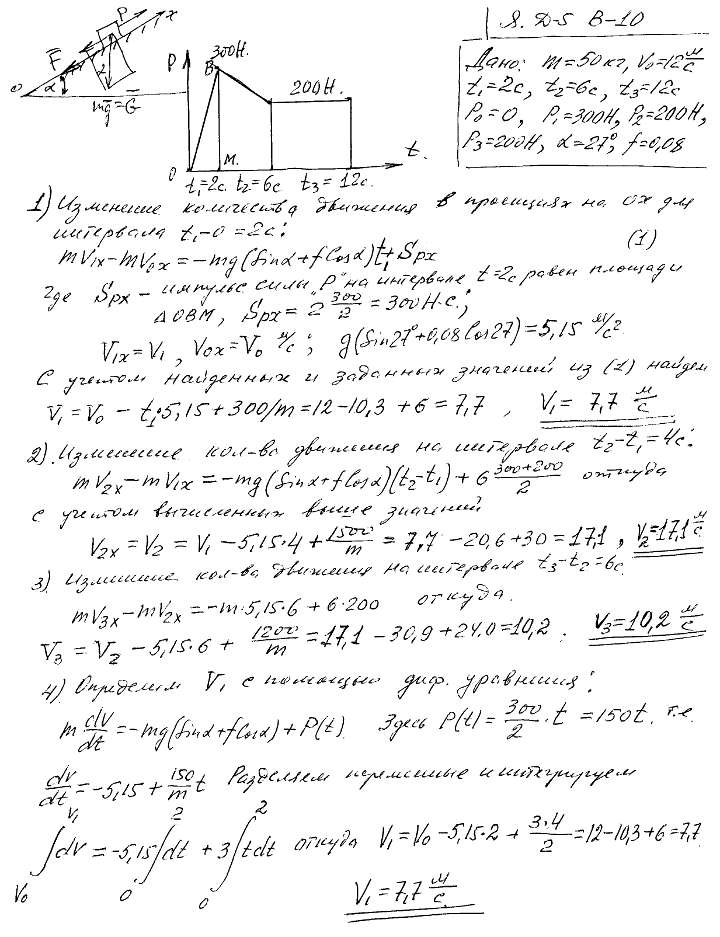 Я. D-5 В-10
Дано: m=50кг, V₀=12 м/с
t₁=2c, t₂=6c, t₃=12c
P₀=0, P₁=300H, P₂=200H,
P₃=200H, α=27°, f=0,08
P x
F̅
α
0
mg̅=G̅
P 300H. 200H.
В
0 М. t.
t₁=2c. t₂=6c t₃=12c.
1) Изменение количества движения в проекциях на ох для
интервала t₁-0=2c:
mV₁ₓ-mV₀ₓ=-mg(Sinα+fCosα)t₁+Sₚₓ (1)
где Sₚₓ - импульс силы „P" на интервале t=2c равен площади
Δ ОВМ, Sₚₓ=2 300/2=300H·c.;
V₁ₓ=V₁, V₀ₓ=V₀ м/с; g(Sin27°+0,08Cos27)=5,15 м/с²
С учетом найденных и заданных значений из (1) найдем
V₁=V₀-t₁·5,15+300/m=12-10,3+6=7,7, V₁=7,7 м/с
2) Изменение кол-ва движения на интервале t₂-t₁=4c:
mV₂ₓ-mV₁ₓ=-mg(Sinα+fCosα)(t₂-t₁)+6 300+200/2 откуда
с учетом вычисленных выше значений
V₂ₓ=V₂=V₁-5,15·4+1500/m=7,7-20,6+30=17,1, V₂=17,1 м/с
3) Изменение кол-ва движения на интервале t₃-t₂=6c
mV₃ₓ-mV₂ₓ=-m·5,15·6+6·200 откуда.
V₃=V₂-5,15·6+1200/m=17,1-30,9+24,0=10,2. V₃=10,2 м/с
4) Определим V₁ с помощью диф. уравнения:
m dV/dt=-mg(Sinα+fCosα)+P(t). Здесь P(t)=300/2·t=150t. т.е.
dv/dt=-5,15+150/m t Разделяем переменные и интегрируем
V₁ 2 2
∫dv=-5,15∫dt+3∫tdt откуда V₁=V₀-5,15·2+3·4/2=12-10,3+6=7,7
V₀ 0 0
V₁=7,7 м/с.